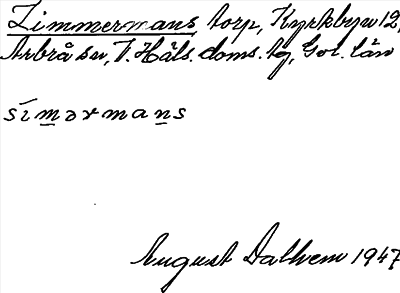 Zimmermans, torp, Kyrkbyn 12,
Arbrå sn, V. Häls. doms. tg, Gvl. län
sím̲ərman̲s
August Dalhem 1947